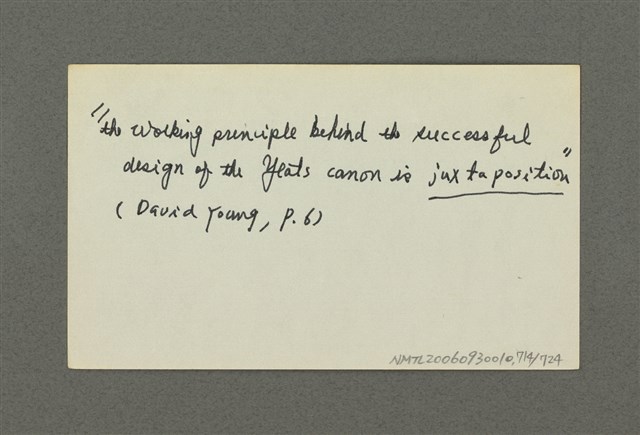 "the working principle behind the successful
design of the Yeats canon is juxtaposition"
(David Young, p. 6)
NMTL20060930010,714/724